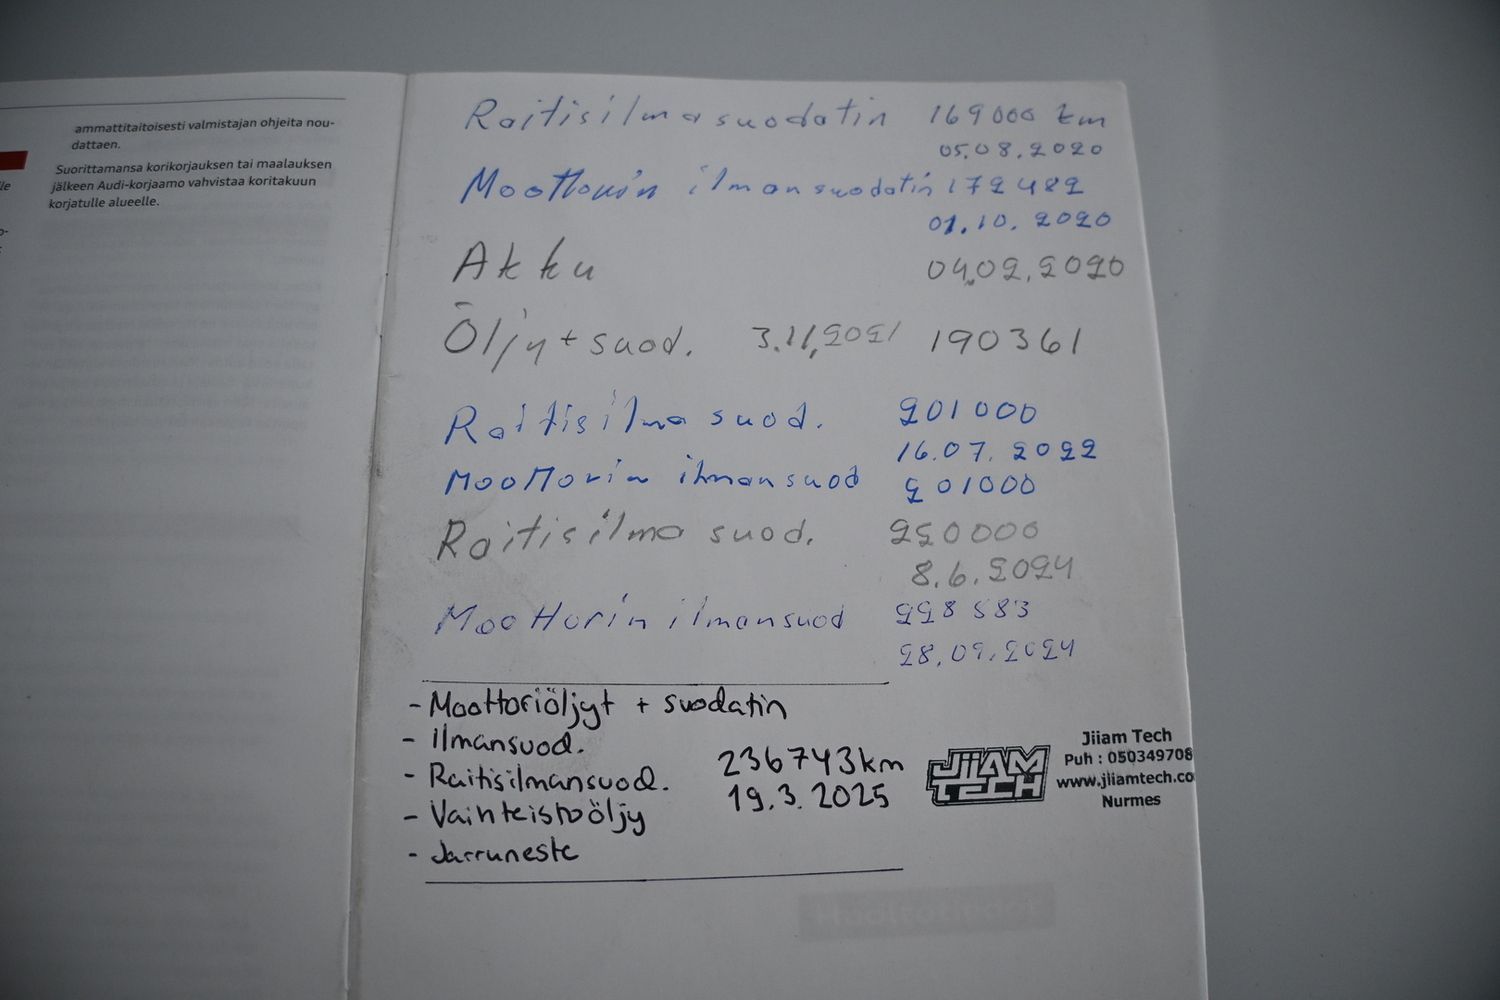 ammattitaitoisesti valmistajan ohjeita nou-
dattaen.
Suorittamansa korikorjauksen tai maalauksen
jälkeen Audi-korjaamo vahvistaa koritakuun
korjatulle alueelle.
Raitisilmasuodatin 169000 km
05.08.2020
Moottorin ilmansuodatin 172482
01.10.2020
Akku 04.02.2020
Öljy + suod. 3.11.2021 190361
Raitisilma suod. 201000
16.07.2022
Moottorin ilmansuod 201000
Raitisilma suod. 220000
8.6.2024
Moottorin ilmansuod 228583
28.09.2024
- Moottoriöljyt + suodatin
- Ilmansuod.
- Raitisilmansuod. 236743km
19.3.2025
- Vaihteistoöljy
- Jarruneste
JIIAM TECH
Jiiam Tech
Puh : 050349708
www.jiiamtech.co
Nurmes